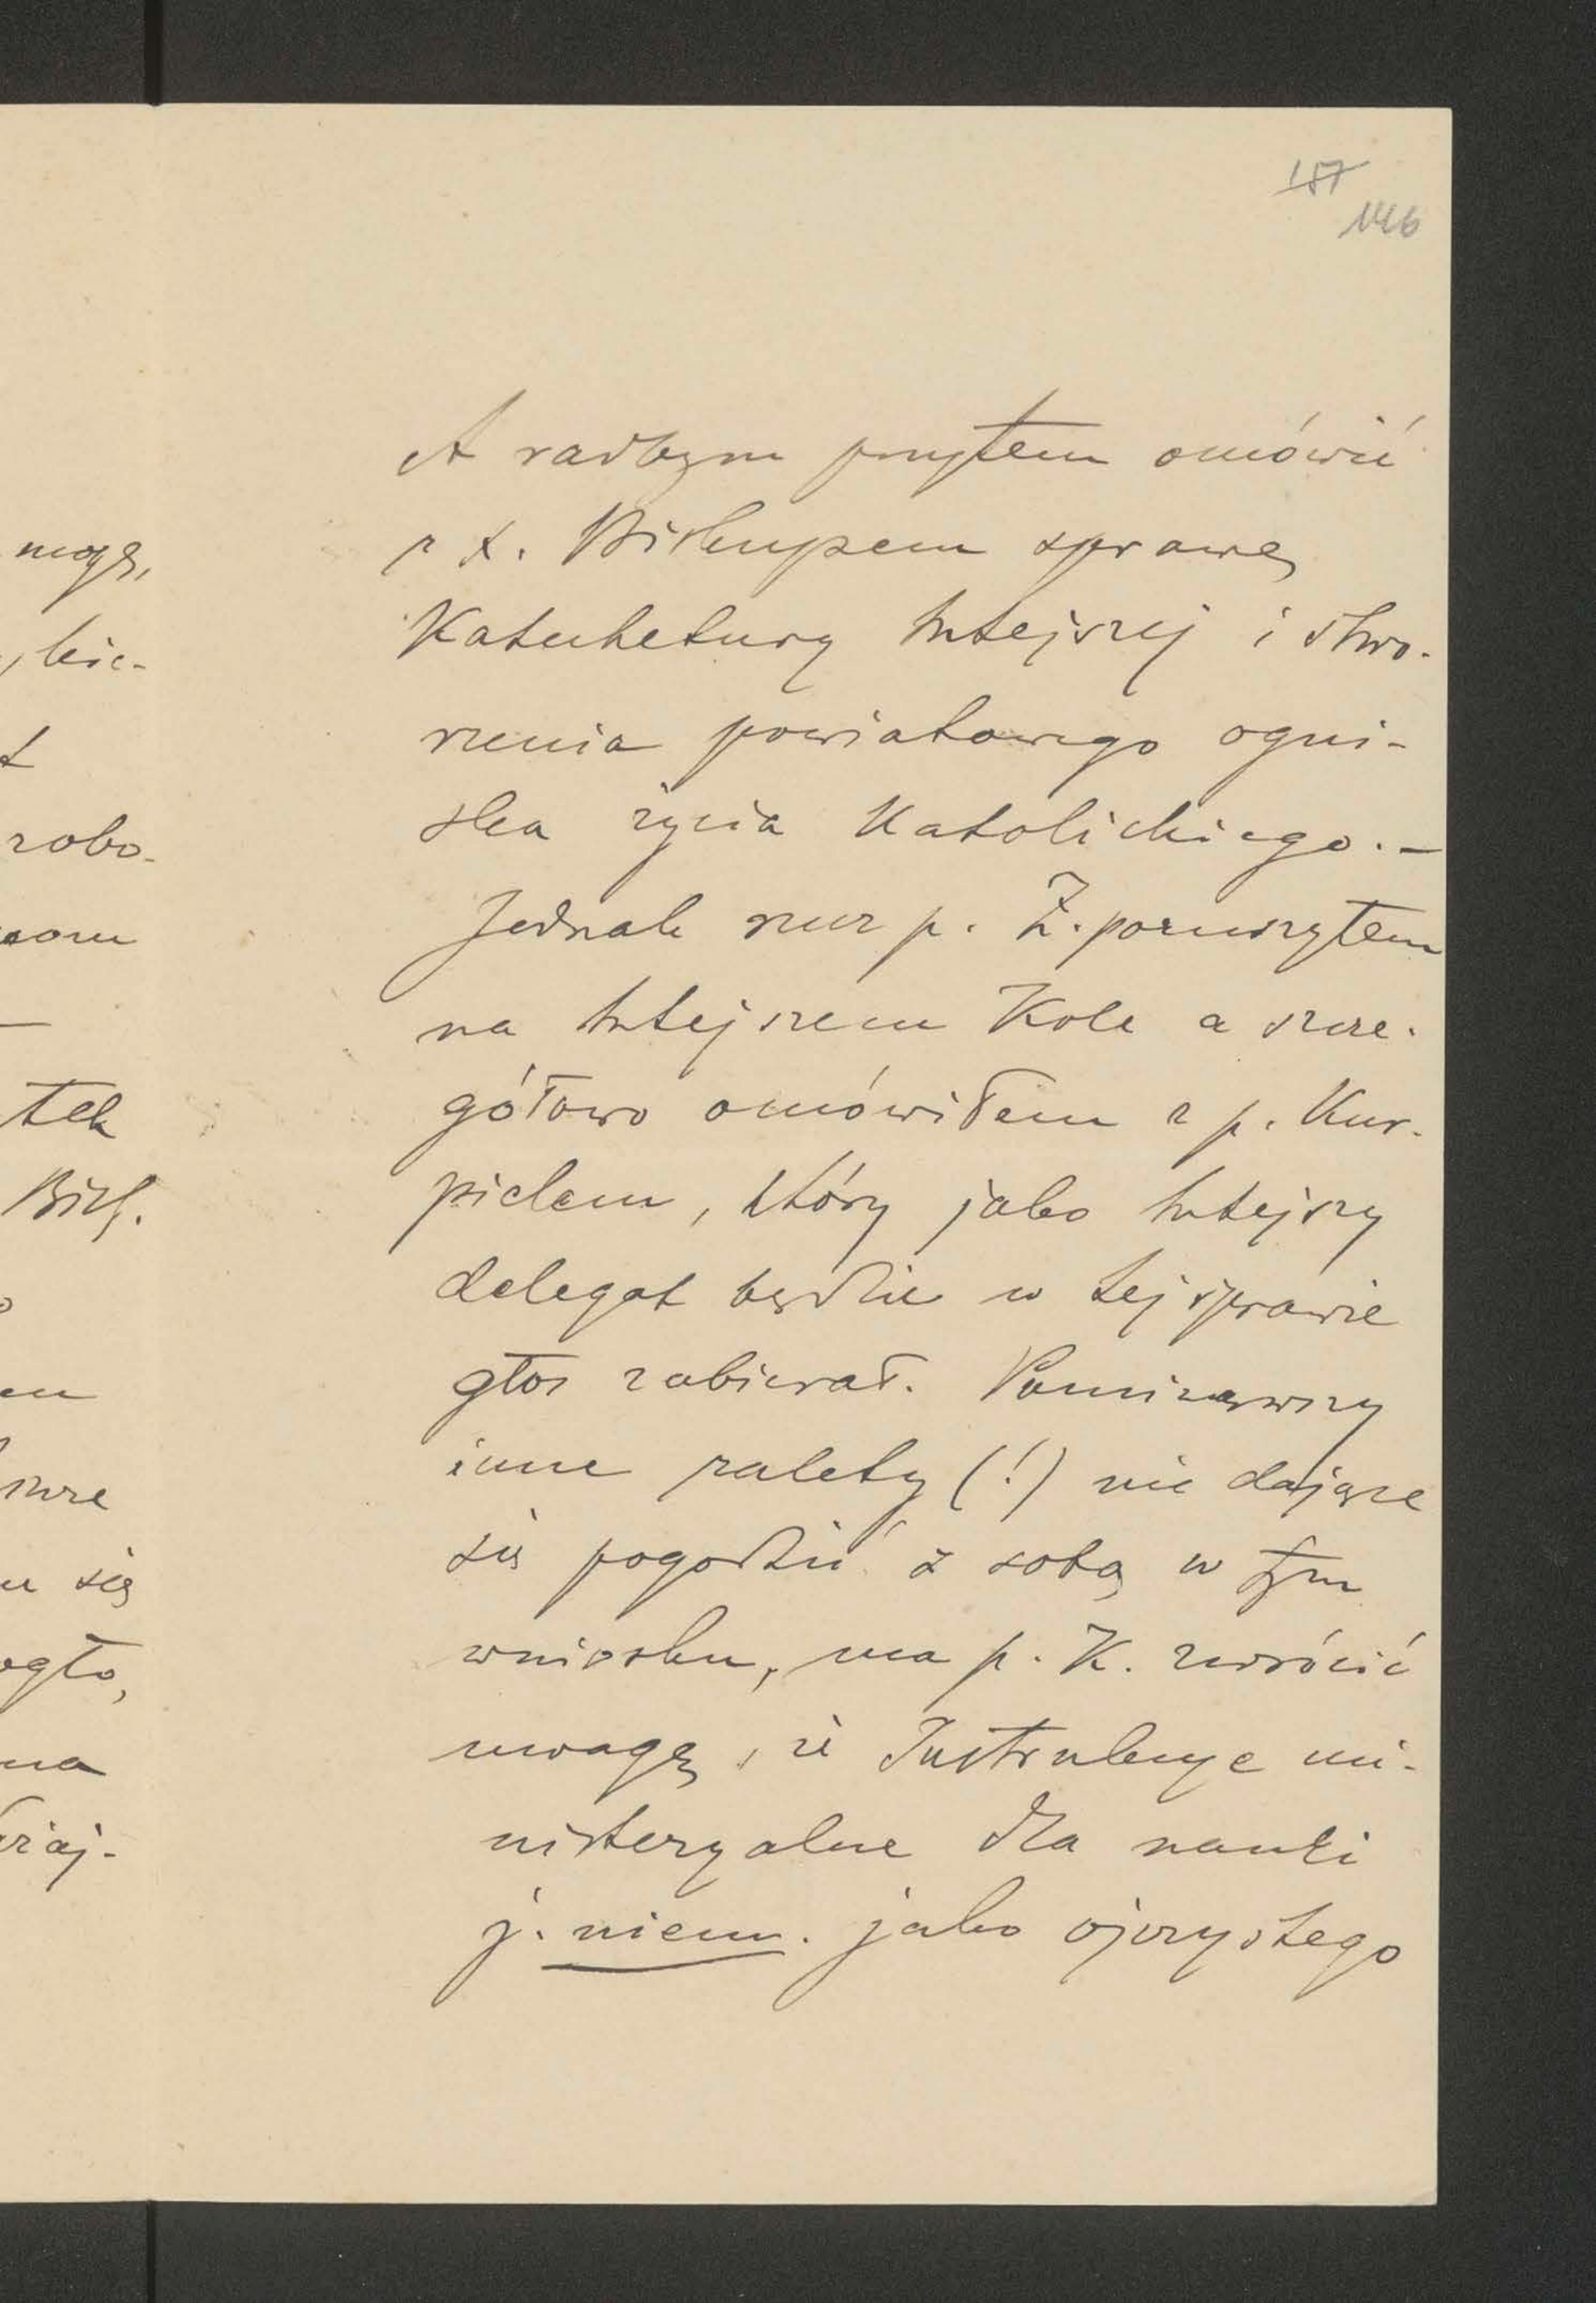 187
146
A radbym przytem omówić
z X. Biskupem sprawę
Katechetury tutejszej i stwo-
rzenia powiatowego ogni-
ska życia katolickiego. —
Jednak rzecz p. Ż. poruszyłem
na tutejszem Kole a szcze-
gółowo omówiłem z p. Kur-
pielem, który jako tutejszy
delegat będzie w tej sprawie
głos zabierał. Pominąwszy
inne zalety (!) nie dające
się pogodzić z sobą w tym
wniosku, ma p. K. zwrócić
uwagę, że Instrukcye mi-
nisteryalne dla nauki
j. niem. jako ojczystego
mogę,
robo-
tek
Bisk.
się
na